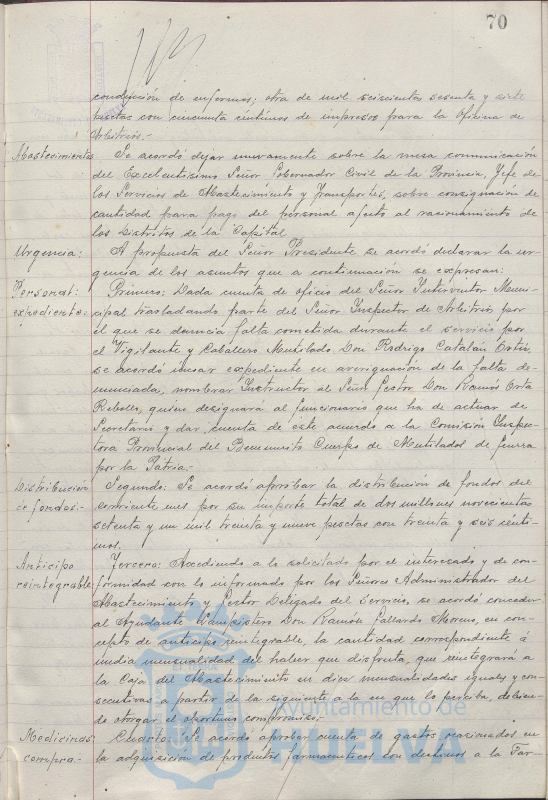 70
conducción de enfermos; otra de mil seiscientas sesenta y siete
pesetas con cincuenta centimos de impresos para la Oficina de
Arbitrios.-
Abastecimientos Se acordó dejar nuevamente sobre la mesa comunicación
del Excelentísimo Señor Gobernador Civil de la Provincia, Jefe de
los Servicios de Abastecimiento y Transportes, sobre consignación de
cantidad para pago del personal afecto al racionamiento de
los distritos de la Capital.
Urgencia: A propuesta del Señor Presidente se acordó declarar la ur-
gencia de los asuntos que a continuación se expresan:
Personal: Primero: Dada cuenta de oficio del Señor Interventor Muni-
expediente: cipal trasladando parte del Señor Inspector de Arbitrios por
el que se denuncia falta cometida durante el servicio por
el Vigilante y Caballero Mutilado Don Rodrigo Catalán Ortiz,
se acordó incoar expediente en averiguación de la falta de-
nunciada, nombrar Instructor al Señor Gestor Don Ramón Orta
Rebollo, quien designará al funcionario que ha de actuar de
Secretario y dar cuenta de este acuerdo a la Comisión Inspec-
tora Provincial del Benemérito Cuerpo de Mutilados de guerra
por la Patria.-
Distribución Segundo: Se acordó aprobar la distribución de fondos del
de fondos.- corriente mes por su importe total de dos millones novecientas
setenta y un mil treinta y nueve pesetas con treinta y seis centi-
mos.
Anticipo Tercero: Accediendo a lo solicitado por el interesado y de con-
reintegrable formidad con lo informado por los Señores Administrador del
Abastecimiento y Gestor Delegado del Servicio, se acordó conceder
al Ayudante Lampistero Don Ramón Gallardo Moreno, en con-
cepto de anticipo reintegrable, la cantidad correspondiente á
media mensualidad del haber que disfruta, que reintegrará a
la Caja del Abastecimiento en diez mensualidades iguales y con-
secutivas a partir de la siguiente a la en que lo perciba, debien-
do otorgar el oportuno compromiso.-
Medicinas: Cuarto: Se acordó aprobar cuenta de gastos ocasionados en
compra.- la adquisición de productos farmaceuticos con destinos a la Far-
Ayuntamiento de
HUELVA